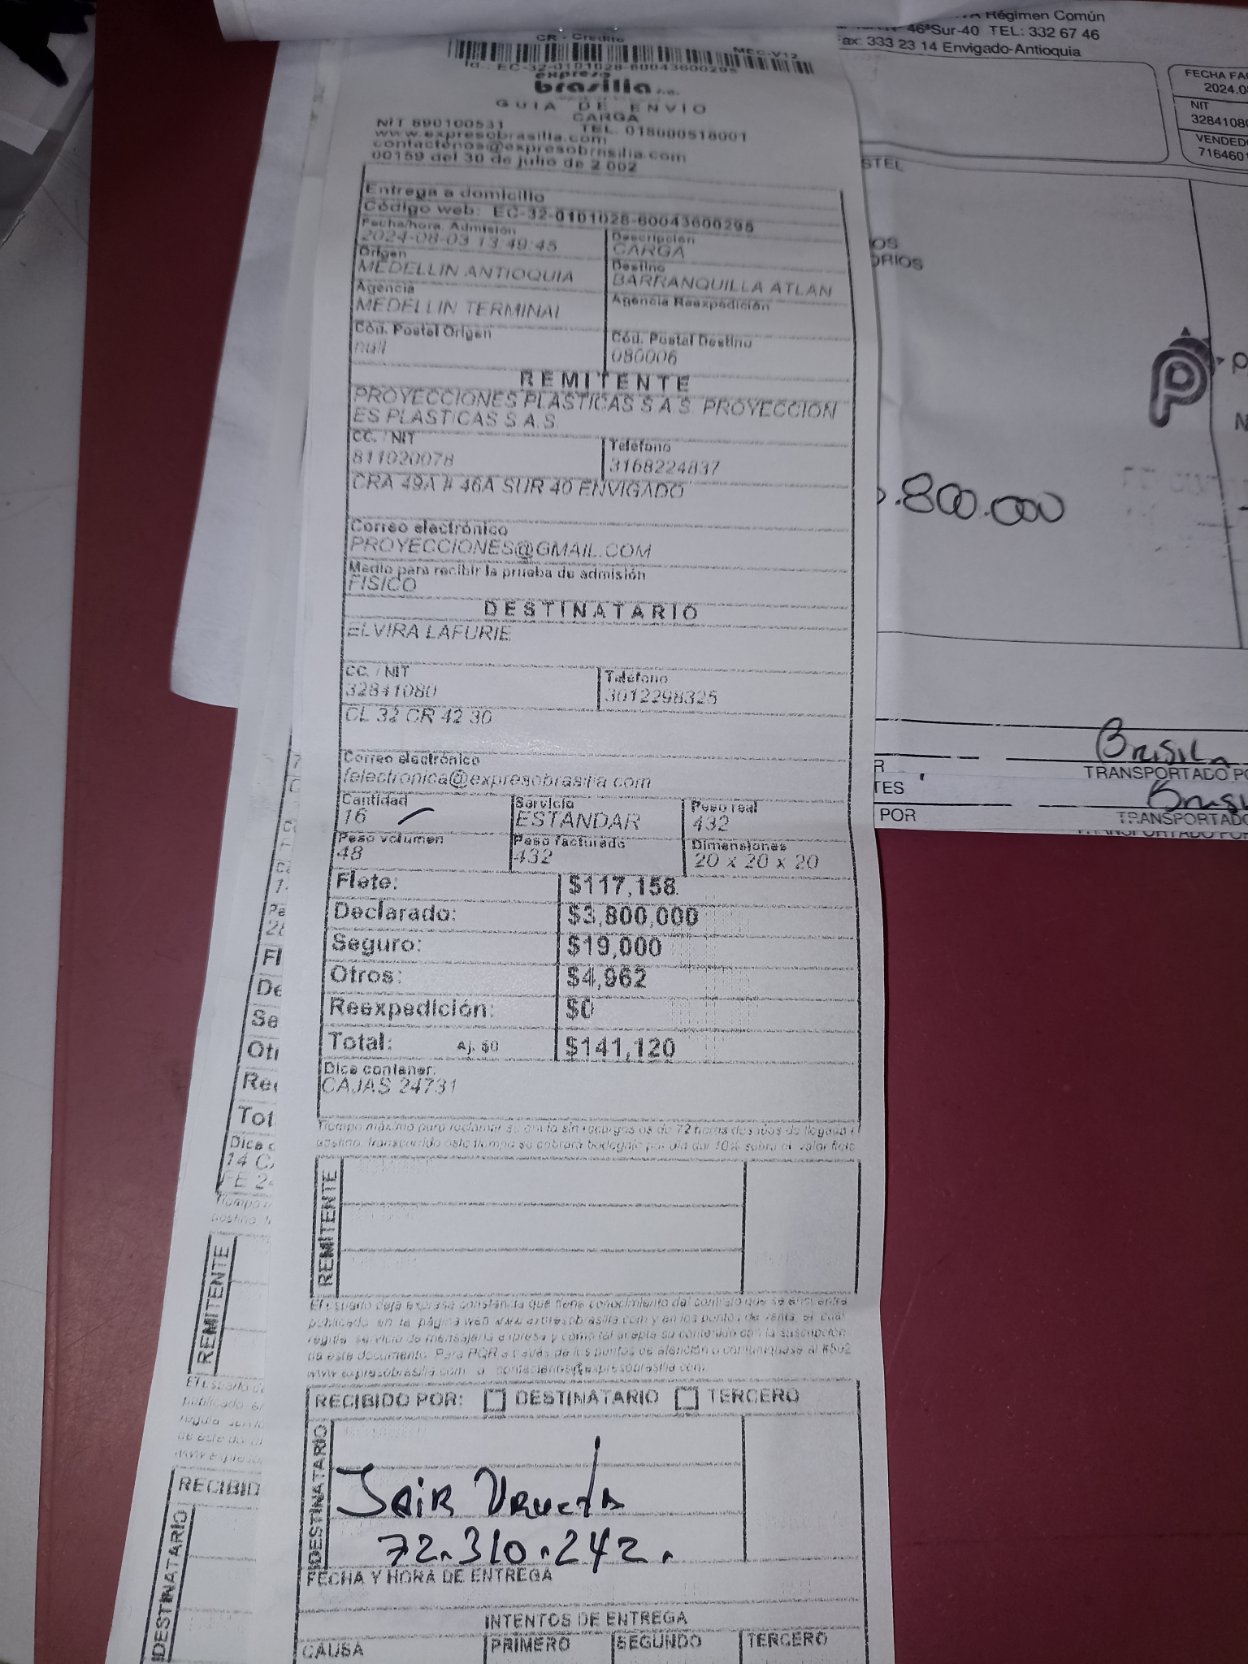 CR - Credito
MEC-V12
Id.: EC-32-0101028-60043600295
expreso
brasilia s.a.
GUIA DE ENVIO
CARGA
NIT 890100531
TEL. 018000518001
www.expresobrasilia.com
contactenos@expresobrasilia.com
00159 del 30 de julio de 2 002
Entrega a domicilio
Código web: EC-32-0101028-60043600295
Fecha/hora. Admisión
2024-08-03 13:49:45
Descripción
CARGA
Origen
MEDELLIN ANTIOQUIA
Destino
BARRANQUILLA ATLAN
Agencia
MEDELLIN TERMINAL
Agencia Reexpedición
Cód. Postal Origen
null
Cód. Postal Destino
080006
REMITENTE
PROYECCIONES PLASTICAS S A S. PROYECCION
ES PLASTICAS S A.S
CC. / NIT
811020078
Teléfono
3168224837
CRA 49A # 46A SUR 40 ENVIGADO
Correo electrónico
PROYECCIONES@GMAIL.COM
Medio para recibir la prueba de admisión
FISICO
DESTINATARIO
ELVIRA LAFURIE
CC. / NIT
32841080
Teléfono
3012298325
CL 32 CR 42 30
Correo electrónico
felectronica@expresobrasilia.com
Cantidad
16
Servicio
ESTANDAR
Peso real
432
Peso volumen
48
Peso facturado
432
Dimensiones
20 x 20 x 20
Flete: $117,158
Declarado: $3,800,000
Seguro: $19,000
Otros: $4,962
Reexpedición: $0
Total: Aj. $0 $141,120
Dice contener:
CAJAS 24731
Tiempo máximo para reclamar su envío sin recargos es de 72 horas después de llegada a
destino, transcurrido este tiempo se cobrará bodegaje por día del 10% sobre el valor flete
REMITENTE
El usuario deja expresa constancia que tiene conocimiento del contrato que se encuentra
publicado en la página web www.expresobrasilia.com y en los puntos de venta, el cual
regula servicio de mensajería expresa y como tal acepta su contenido con la suscripción
de este documento. Para PQR a través de los puntos de atención o comuníquese al #502
www.expresobrasilia.com o contactenos@expresobrasilia.com.
RECIBIDO POR: DESTINATARIO TERCERO
DESTINATARIO
Jair Urueta
72.310.242.
FECHA Y HORA DE ENTREGA
INTENTOS DE ENTREGA
CAUSA PRIMERO SEGUNDO TERCERO
Régimen Común
46ªSur-40 TEL: 332 67 46
ax: 333 23 14 Envigado-Antioquia
FECHA FA
2024.0
NIT
3284108
VENDED
716460
STEL
OS
ORIOS
p
N
.800.000
R
TES
POR
Brasila
TRANSPORTADO PO
Bras
TRANSPORTADO
TRANSPORTADO POR
Pe
Fl
De
Se
Otr
Ree
Tot
Dice c
14 C
FE 2
REMITENTE
RECIBID
DESTINATARIO